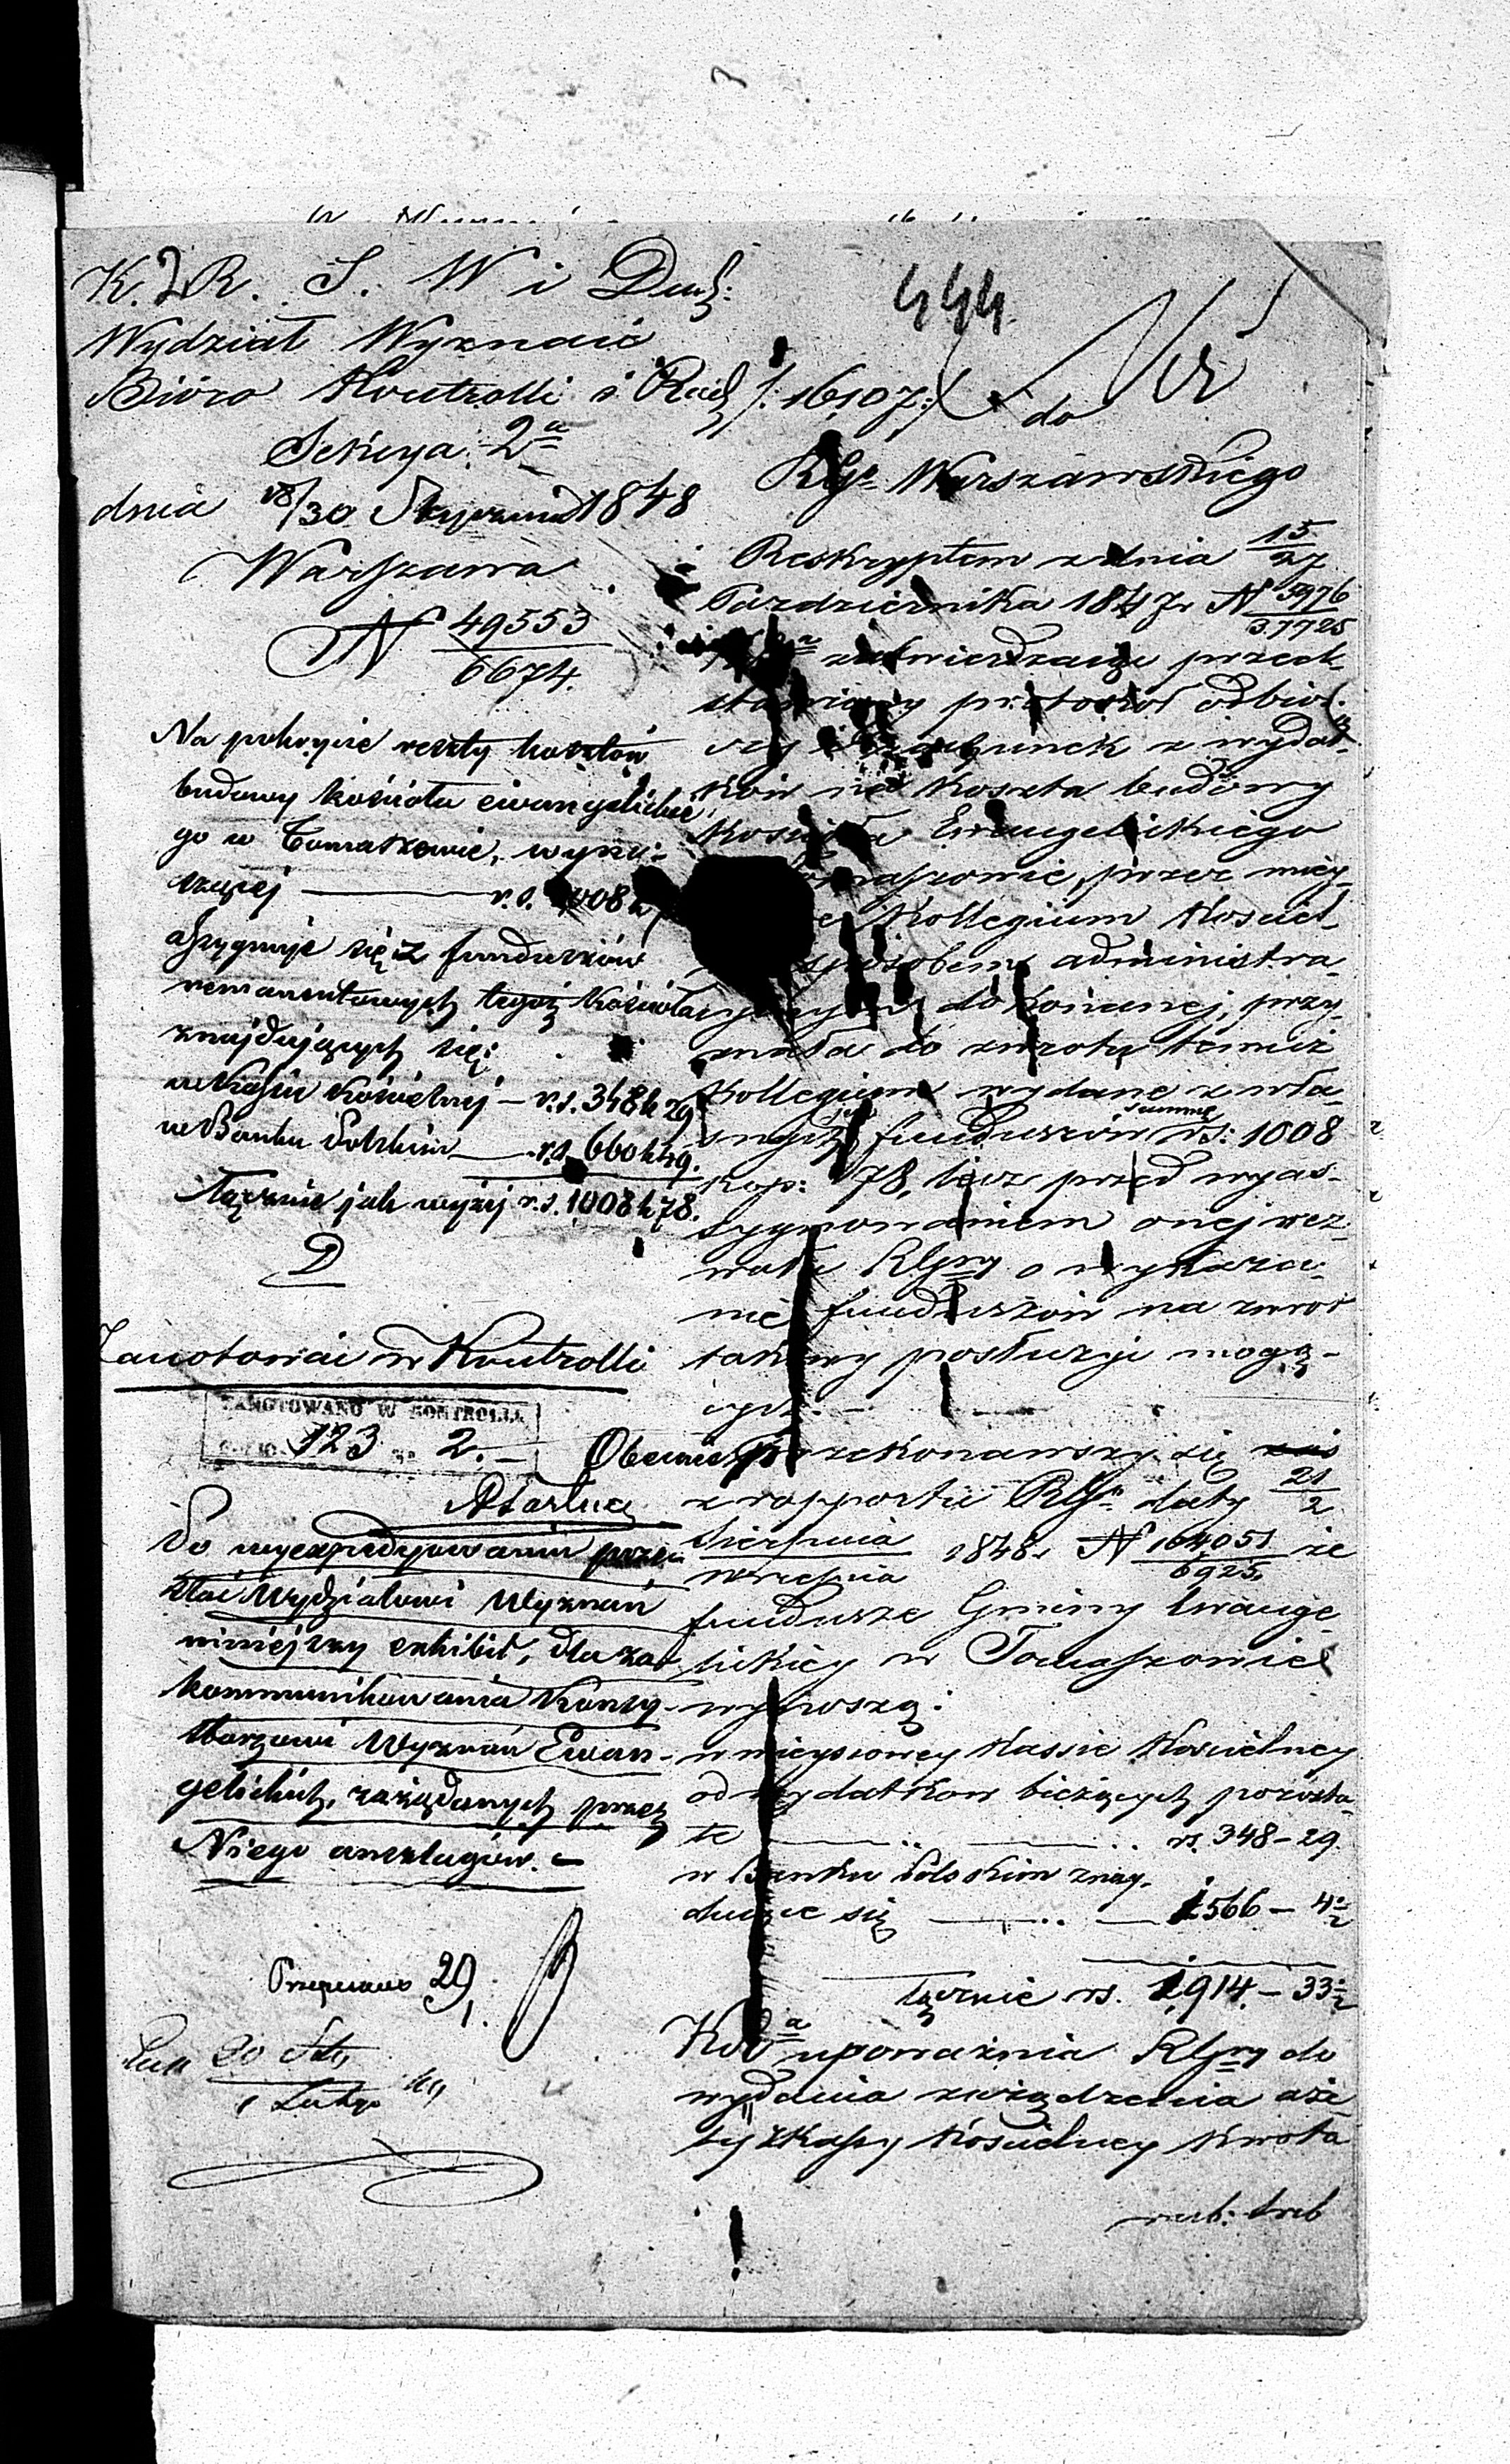 K. R. S. W i Duch:
Wydział Wyznań
Bióro Kontrolli i Rach /:16107:/
Sekcya 2a
dnia 18/30 Stycznia 1848
Warszawa
N 49553
6674.
Na pokrycie reszty kosztów
budowy kościoła ewangelickie
go w Tomaszowie, wyno-
szącej — r.s. 1008 k
assygnuje się z funduszów
remanentowych tegoż kościoła
znajdujących się:
w Kassie Kościelnej — r.s. 348 k 29
w Banku Polskim — r.s. 660 k 49.
łącznie jak wyżej r.s. 1008 k 78.
Zanotować w Kontrolli
ZANOTOWANO W KONTROLLI
123 2.
Do wyexpedyowaniu prze
słać Wydziałowi Wyznań
niniejszy exhibit, dla za
kommunikowania Konsy-
storzowi Wyznań Ewan-
gelickich, zażądanych przez
Niego anszlagów. –
Przepisano 29/1.
20
1 Lutego
444
do
RGo Warszawskiego
Reskryptem z dnia 15/27
Października 1847 r N 3976
37725
zatwierdzając przed
stawiony protokół odbior
czy i rachunek z wydat-
ków na koszta budowy
Kościoła Ewangelickiego
Tomaszowie, przez miey-
Kollegium Kościel
sposobem administra
cyjnym dokonanej, przy
znała do zwrotu temuż
Kollegium wydane z wła-
snych funduszów summę rs: 1008
kop: 78, lecz przed wyas-
sygnowaniem onej wez-
wała RGry o wykaza-
nie funduszów na zwrot
takowy posłużyć mogą-
cych. –
Obecnie przekonawszy się
z rapportu RGo daty 21/2
Sierpnia
września 1848 r N 164051 że
6925
fundusze Gminy Ewange
lickiey w Tomaszowie
wynoszą:
w mieyscowey Kassie Kościelney
od wydatków bieżących pozosta
łe — rs. 348 – 29
w Banku Polskim znay-
duiące się — 1566 – 4½
łącznie rs. 1914. – 33½
upoważnia RGry do
wydania zarządzenia aże
by z Kassy Kościelney kwota